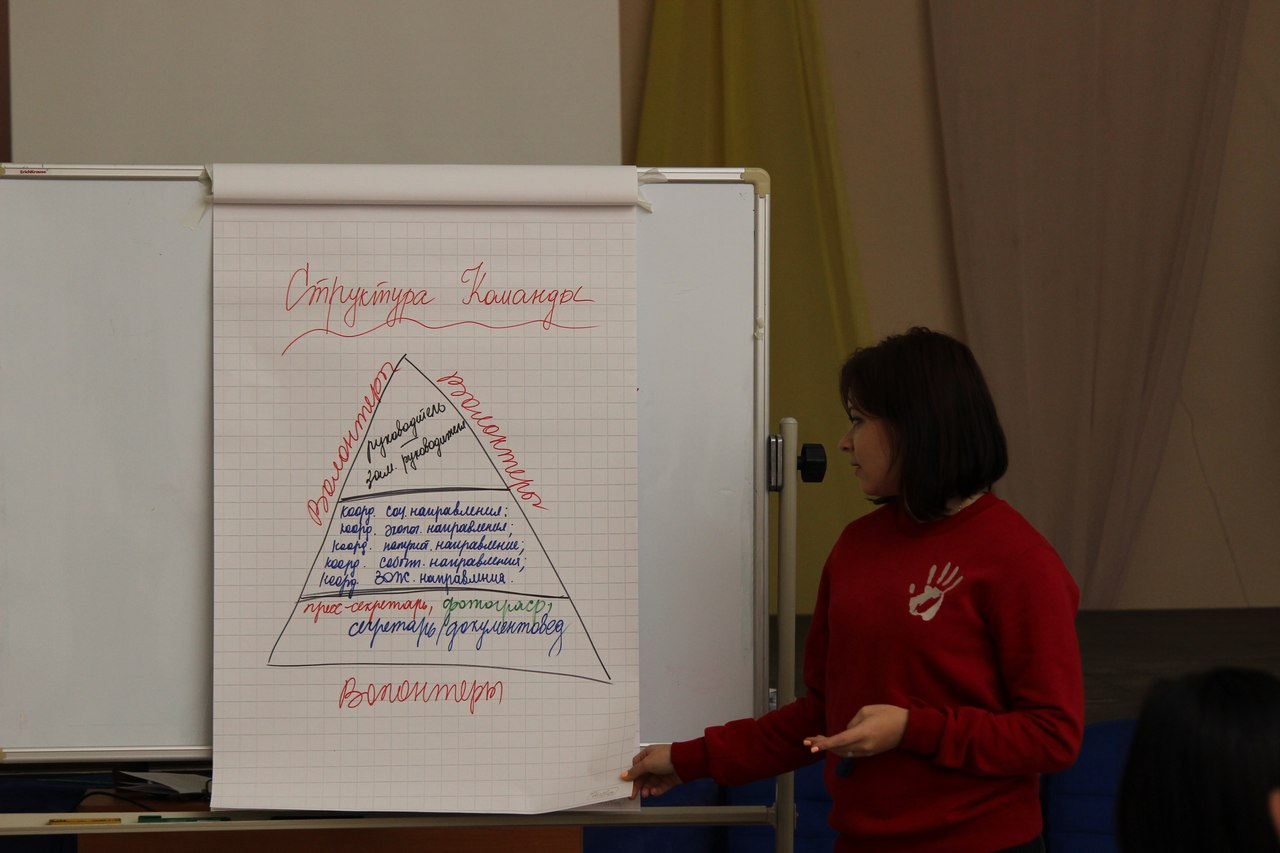 ErichKrause
Структура Команды
Волонтеры
Волонтеры
руководитель
зам. руководителя
коорд. соц. направления;
коорд. эколог. направления;
коорд. патриот. направление;
коорд. событ. направления;
коорд. ЗОЖ. направления.
пресс-секретарь, фотограф,
секретарь/документовед
Волонтеры